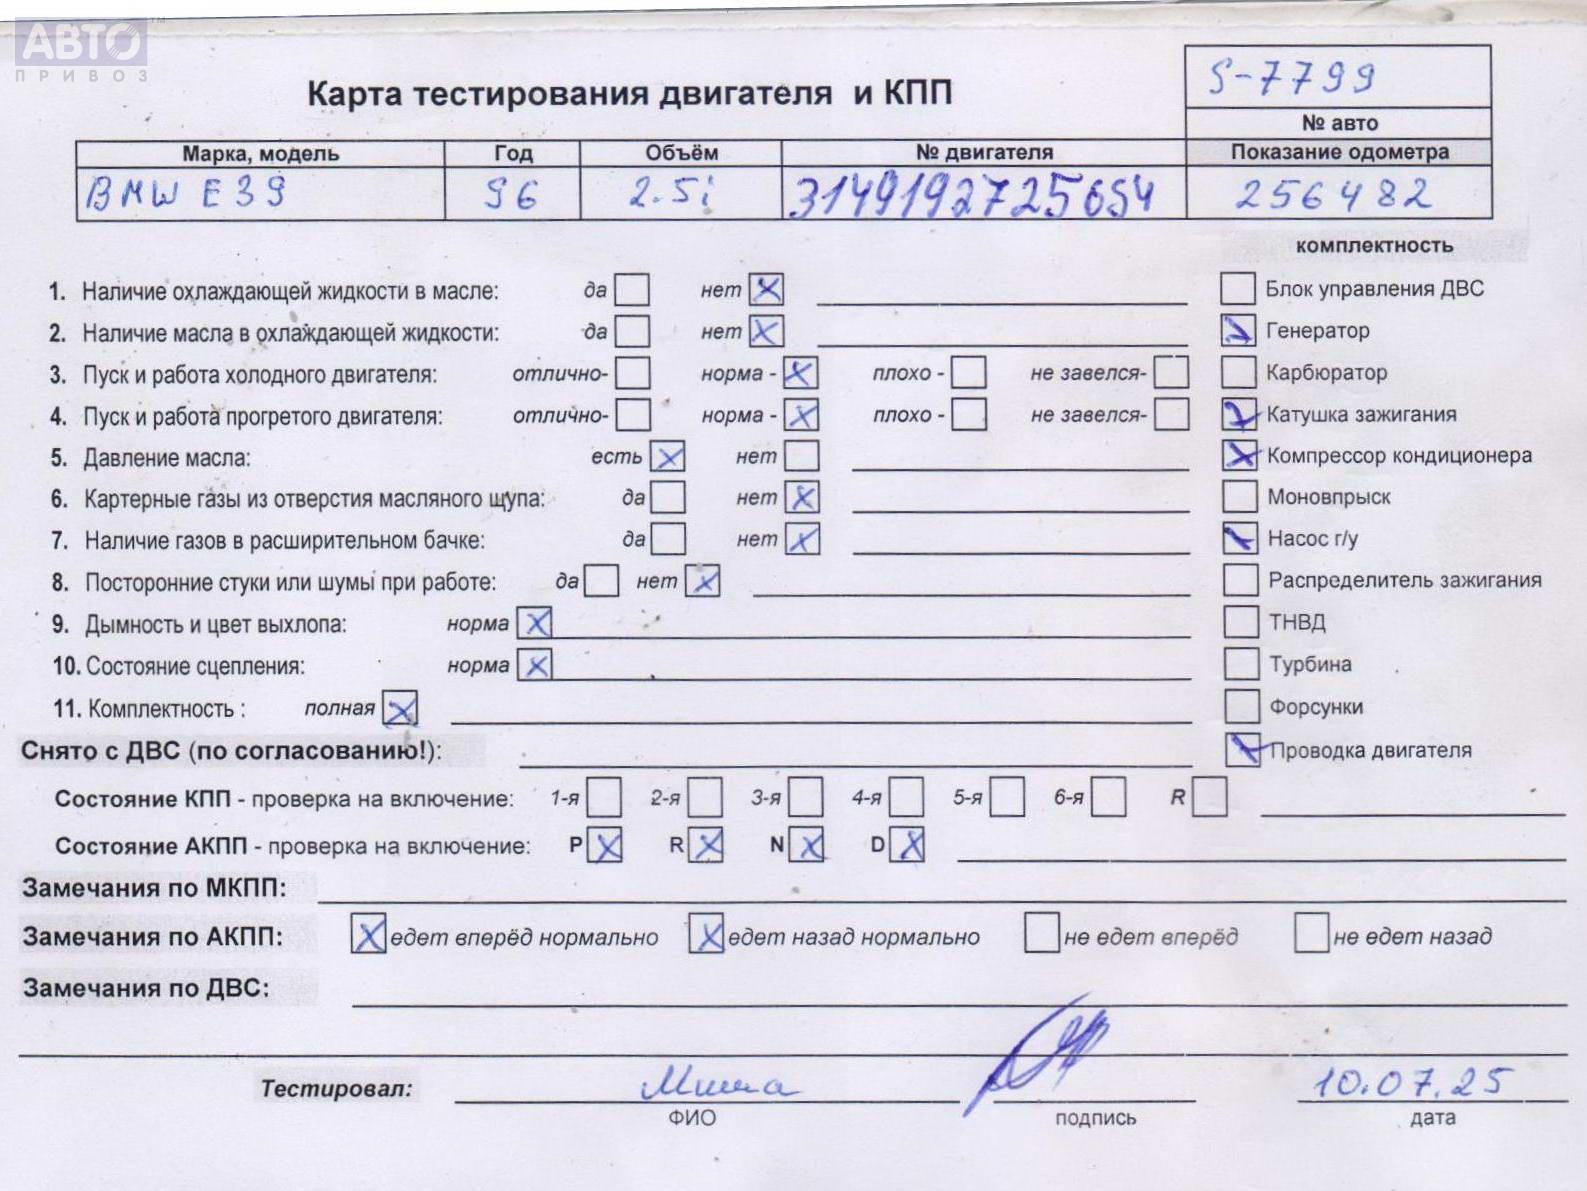 АВТО
ПРИВОЗ
Карта тестирования двигателя и КПП
S-7799
№ авто
Марка, модель Год Объём № двигателя Показание одометра
BMW E39 96 2.5i 3149192725654 256482
комплектность
1. Наличие охлаждающей жидкости в масле: да нет Блок управления ДВС
2. Наличие масла в охлаждающей жидкости: да нет Генератор
3. Пуск и работа холодного двигателя: отлично- норма - плохо - не завелся- Карбюратор
4. Пуск и работа прогретого двигателя: отлично- норма - плохо - не завелся- Катушка зажигания
5. Давление масла: есть нет Компрессор кондиционера
6. Картерные газы из отверстия масляного щупа: да нет Моновпрыск
7. Наличие газов в расширительном бачке: да нет Насос г/у
8. Посторонние стуки или шумы при работе: да нет Распределитель зажигания
9. Дымность и цвет выхлопа: норма ТНВД
10. Состояние сцепления: норма Турбина
11. Комплектность : полная Форсунки
Снято с ДВС (по согласованию!): Проводка двигателя
Состояние КПП - проверка на включение: 1-я 2-я 3-я 4-я 5-я 6-я R
Состояние АКПП - проверка на включение: P R N D
Замечания по МКПП:
Замечания по АКПП: едет вперёд нормально едет назад нормально не едет вперёд не едет назад
Замечания по ДВС:
Тестировал: Миша 10.07.25
ФИО подпись дата